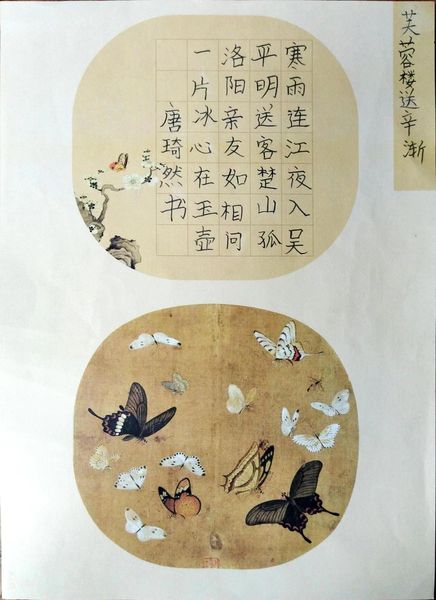 芙蓉楼送辛渐
寒雨连江夜入吴
平明送客楚山孤
洛阳亲友如相问
一片冰心在玉壶
唐琦然书